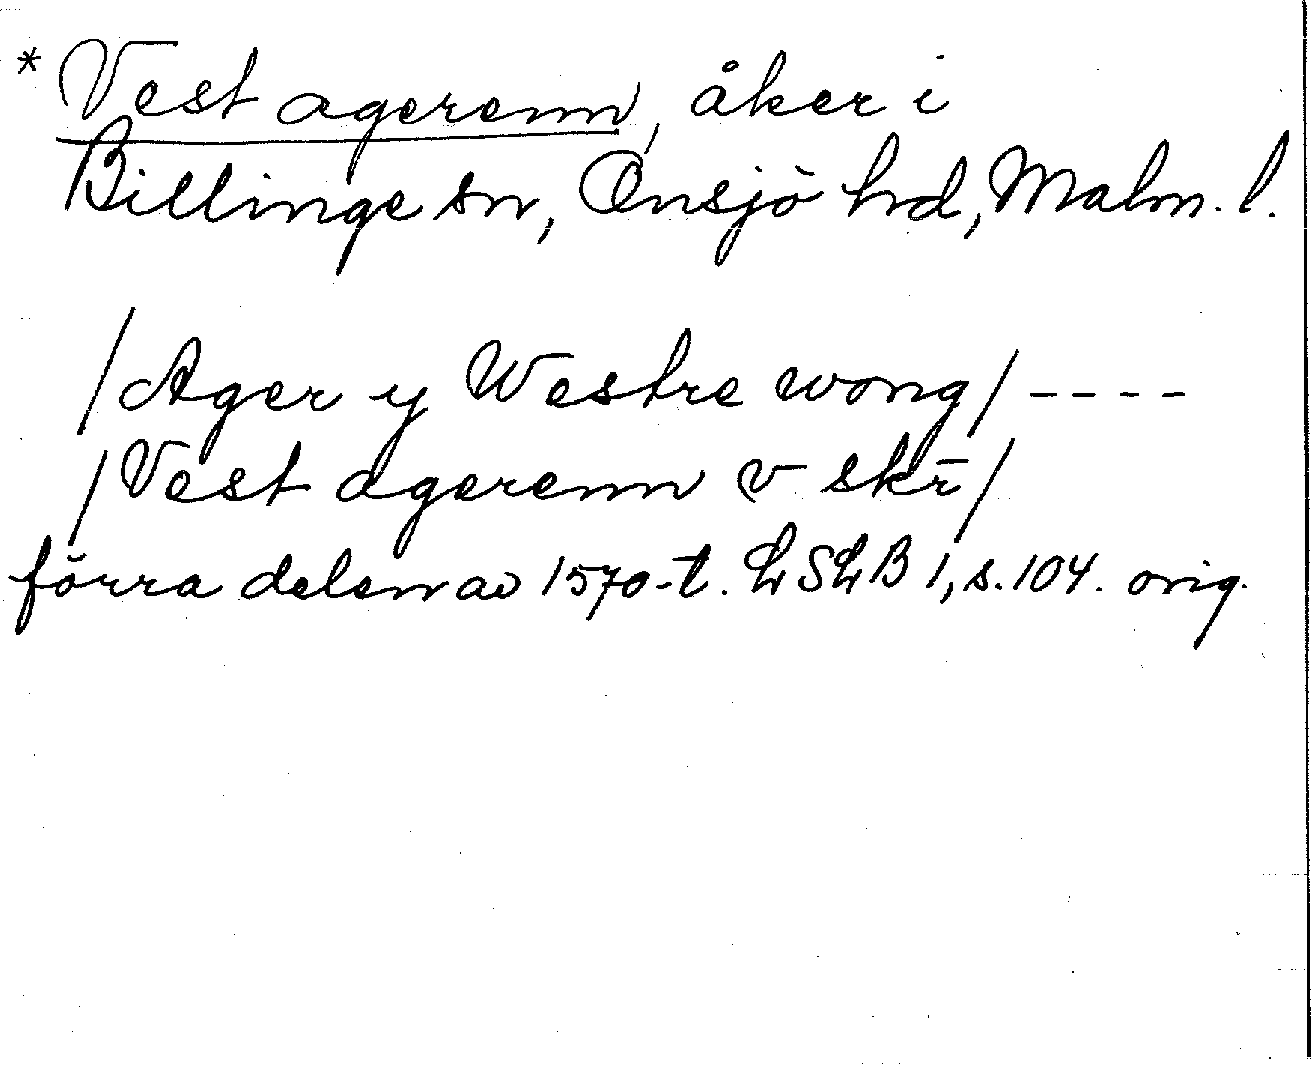 * Vest agerenn, åker i
Billinge sn, Onsjö hd, Malm. l.
/Ager y Westre wong/ ----
/Vest agerenn v skr̄/
förra delen av 1570-t. LSLB 1, s. 104. orig.